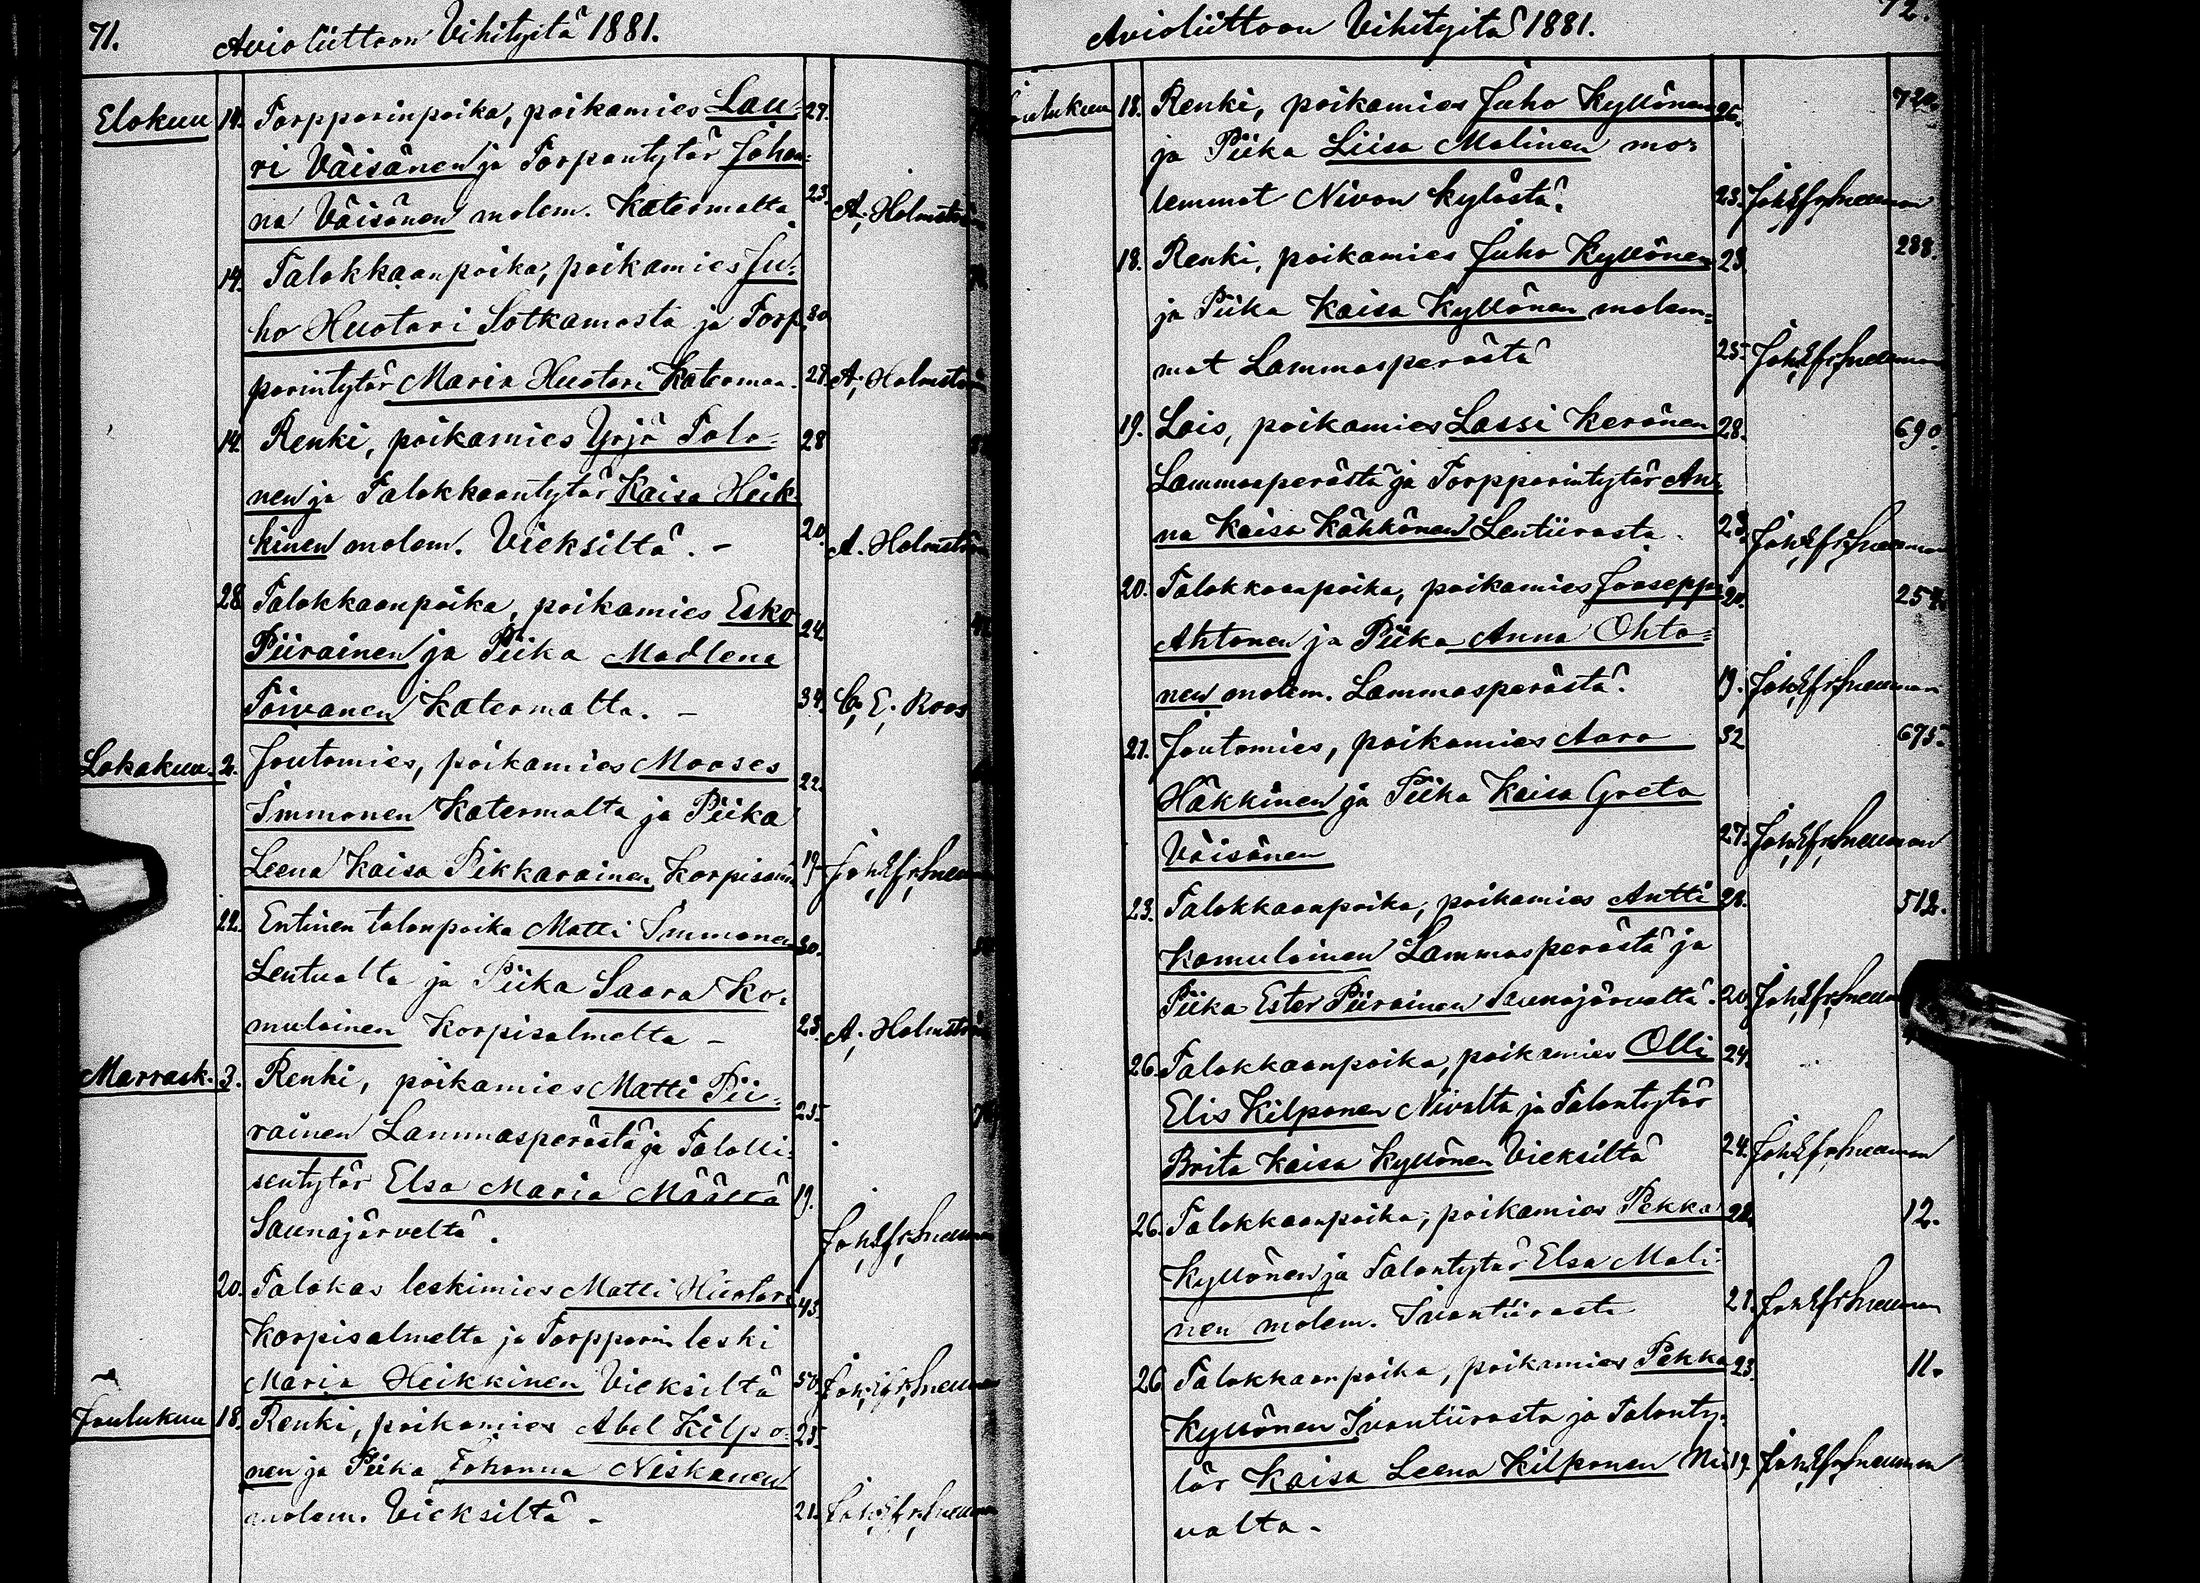 71. Avioliittoon Vihityitä 1881.
Elokuu 14. Torpparinpoika, poikamies Lau= 27.
ri Väisänen ja Torpantytär Johan=
na Väisänen molem. Katermalta 23. A. Holmström
14. Talokkaanpoika, poikamies Ju=
ho Huotari Sotkamosta ja Torp 30
parintytär Maria Huotari Katermaa. 27. A. Holmström
14. Renki, poikamies Yrjö Tolo= 28
nen ja Talokkaantytär Kaisa Heik
kinen molem. Vieksiltä. - 20. A. Holmström
28 Talokkaanpoika, poikamies Esko
Piirainen ja Piika Madlena 24.
Toivanen Katermalta. - 34. C. E. Roos
Lokakuu. 2. Joutomies, poikamies Mooses
Immonen Katermalta ja Piika 22.
Leena Kaisa Pikkarainen Korpisalm 19. Joh. Efr. Snellman
22. Entinen talonpoika Matti Immonen 30.
Lentualta ja Piika Saara Ko=
mulainen Korpisalmelta - 23. A. Holmström
Marrask. 3. Renki, poikamies Matti Pii=
rainen Lammasperästä ja Talolli= 25.
sentytär Elsa Maria Määttä 19.
Saunajärveltä. Joh. Efr. Snellman
20. Talokas leskimies Matti Huotari 43.
Korpisalmelta ja Torpparin leski
Maria Heikkinen Vieksiltä 50. Joh. Efr. Snellman
Joulukuu 18. Renki, poikamies Abel Kilpo= 25.
nen ja Piika Johanna Niskanen
molem. Vieksiltä - 21. Joh. Efr. Snellman
Avioliittoon Vihityitä 1881. 72.
Joulukuu 18. Renki, poikamies Juho Kyllönen 26. 720.
ja Piika Liisa Malinen mo=
lemmat Nivan kylästä. 23. Joh. Efr. Snellman
18. Renki, poikamies Juho Kyllönen 23. 288.
ja Piika Kaisa Kyllönen molem=
mat Lammasperästä 25. Joh. Efr. Snellman
19. Lois, poikamies Lassi Keränen 28. 690
Lammasperästä ja Torpparintytär An=
na Kaisa Kähkönen Lentiirasta. 23. Joh. Efr. Snellman
20. Talokkaanpoika, poikamies Jooseppi
Ahtonen ja Piika Anna Ohto=
nen molem. Lammasperästä. 19. Joh. Efr. Snellman
21. Joutomies, poikamies Aaro 32 675.
Häkkinen ja Piika Kaisa Greta
Väisänen 27. Joh. Efr. Snellman
23. Talokkaanpoika, poikamies Antti 28. 512.
Komulainen Lammasperästä ja
Piika Ester Piirainen Saunajärveltä. 20. Joh. Efr. Snellman
26. Talokkaanpoika, poikamies Olli 24.
Elis Kilponen Nivalta ja Talontytär
Brita Kaisa Kyllönen Vieksiltä 24. Joh. Efr. Snellman
26. Talokkaanpoika, poikamies Pekka 12.
Kyllönen ja Talontytär Elsa Mali=
nen molem. Ivantiirasta 21. Joh. Efr. Snellman
26 Talokkaanpoika, poikamies Pekka 23. 11.
Kyllönen Ivantiirasta ja Talonty=
tär Kaisa Leena Kilponen Ni 19. Joh. Efr. Snellman
valta.